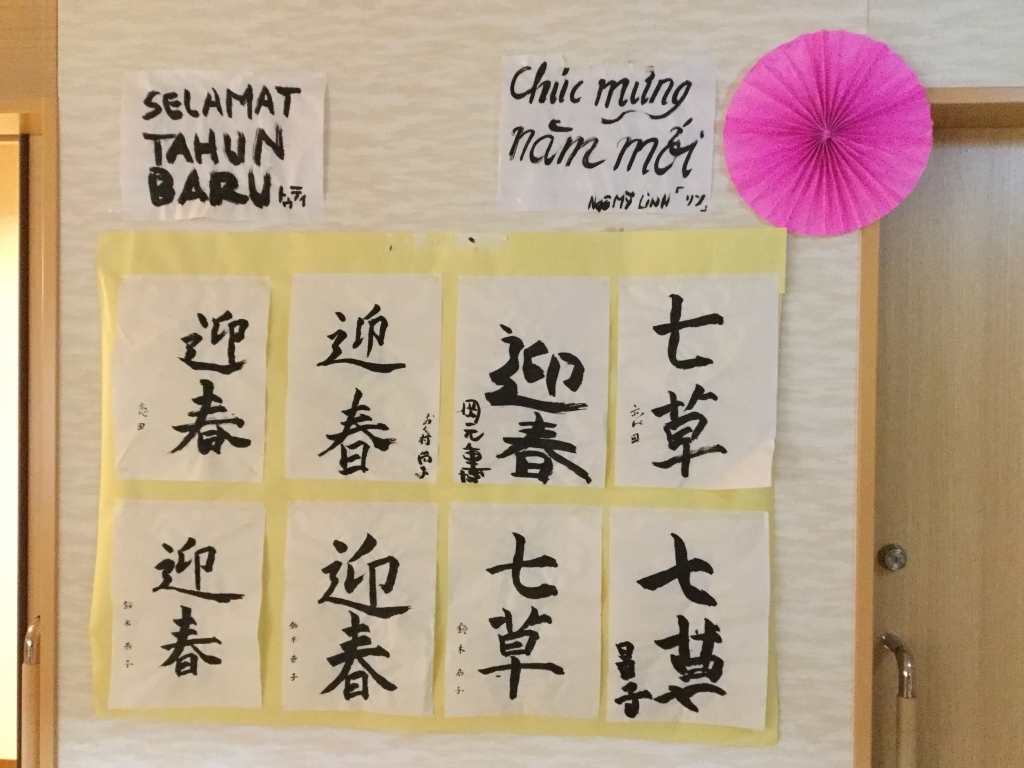 SELAMAT
TAHUN
BARU トゥティ
Chúc mừng
năm mới
NGÔ MỸ LINH「リン」
迎春
迎春
迎春
七草
迎春
鈴木恭子
迎春
鈴木恭子
七草
鈴木恭子
七草
昌子